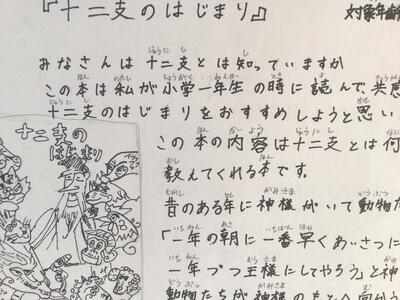 『十二支のはじまり』
対象年齢
みなさんは十二支とは知っていますか
この本は私が小学一年生の時に読んで、共感
十二支のはじまりをおすすめしようと思い
この本の内容は十二支とは何
教えてくれる本です。
昔のある年に神様がいて動物た
「一年の朝に一番早くあいさつに
一年づつ王様にしてやろう」と神
動物たちが神様のもとへ向かう
十二支の
はじまり